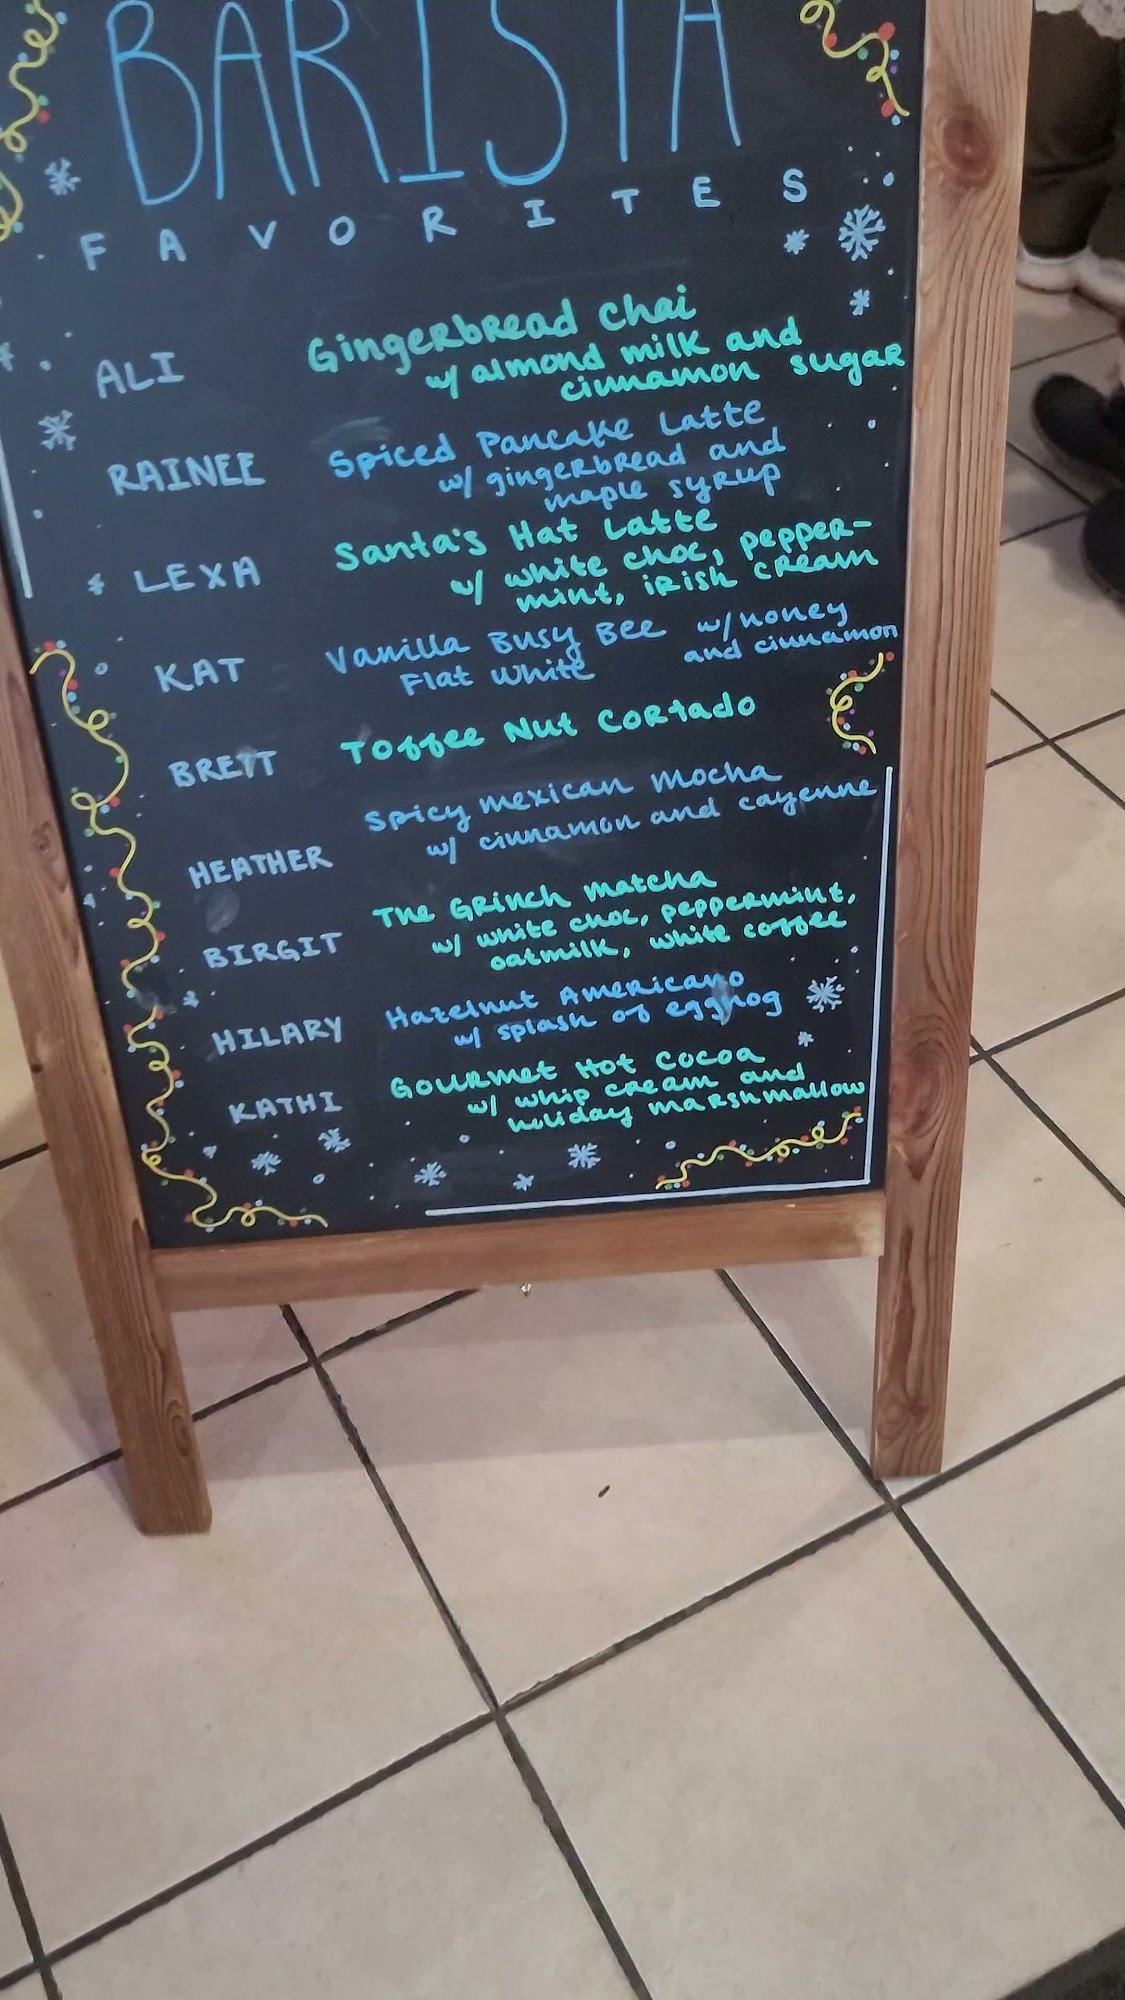 BARISTA
FAVORITES
ALI Gingerbread Chai
w/ almond milk and
cinnamon sugar
RAINEE Spiced Pancake Latte
w/ gingerbread and
maple syrup
LEXA Santa's Hat Latte
w/ white choc, pepper-
mint, irish cream
KAT Vanilla Busy Bee w/ honey
Flat White and cinnamon
BRETT Toffee Nut Cortado
HEATHER Spicy mexican mocha
w/ cinnamon and cayenne
BIRGIT The Grinch matcha
w/ white choc, peppermint,
oatmilk, white coffee
HILARY Hazelnut Americano
w/ splash of eggnog
KATHI Gourmet Hot Cocoa
w/ whip cream and
holiday marshmallow